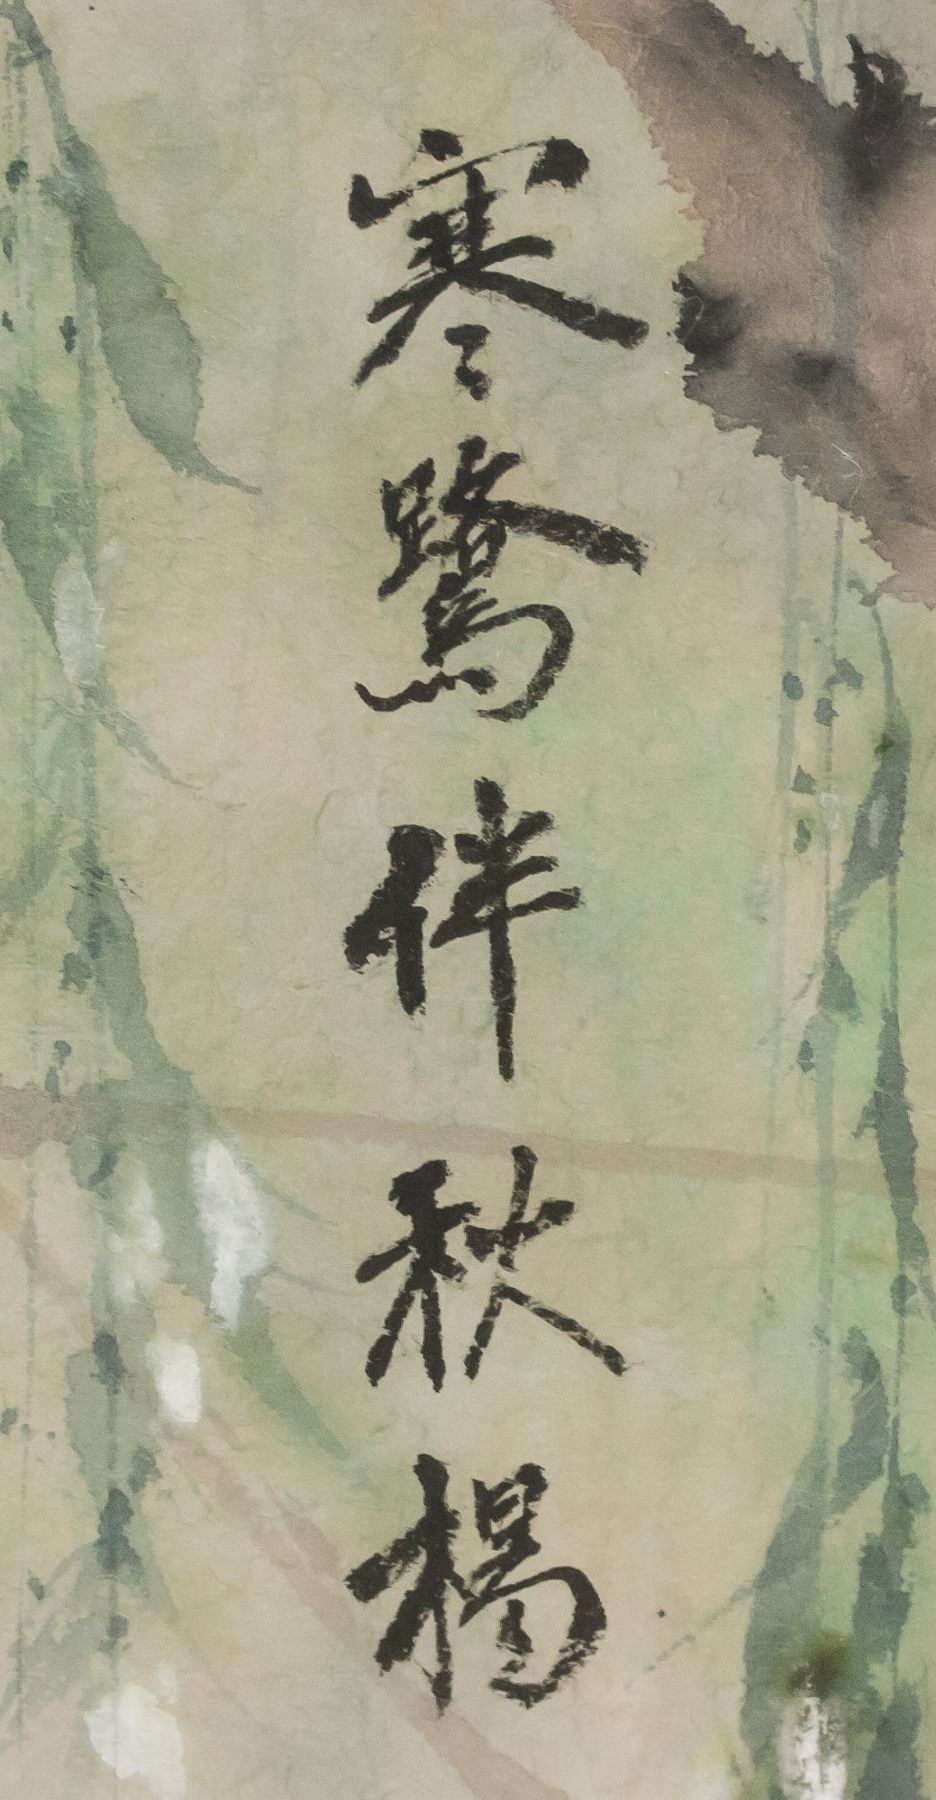 寒鷺伴秋楊